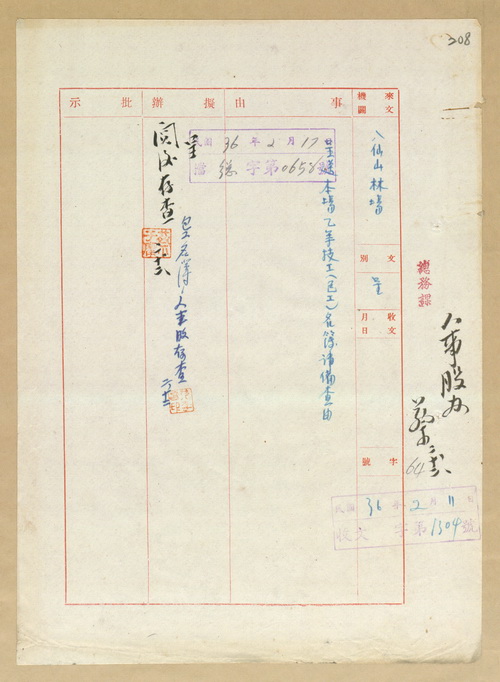 208
來文機關
八仙山林場
文別
呈
收文
月日
字號
64
總務課
人事股办
民國36年2月11日
收文 字第1304號
事由
呈送本場乙等技工(包工)名簿請備查由
民國36年2月17日
字第065
擬辦
呈
閱後存查
名簿人事股存查
批示